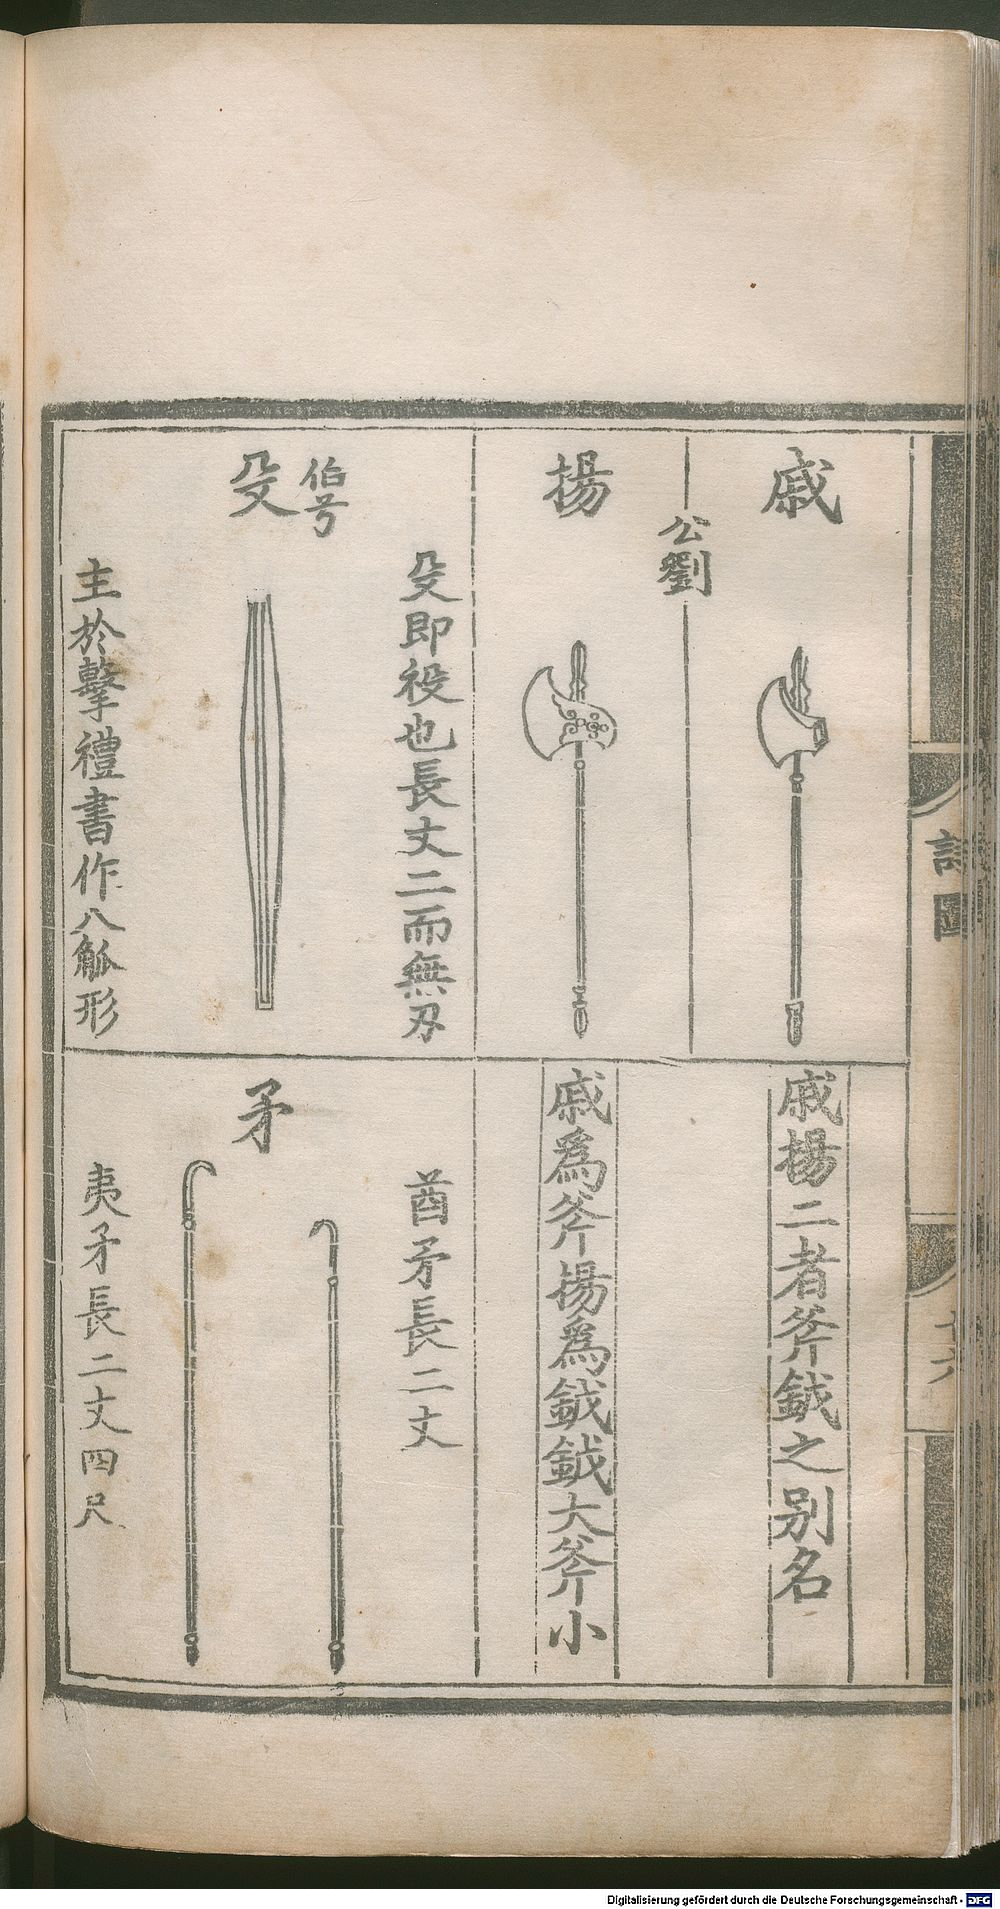 詩圖
戚
公劉
揚
殳即祋也長丈二而無刃
伯兮
殳
主於擊禮書作八觚形
戚揚二者斧鉞之别名
戚爲斧揚爲鉞鉞大斧小
酋矛長二丈
矛
夷矛長二丈四尺
Digitalisierung gefördert durch die Deutsche Forschungsgemeinschaft - DFG